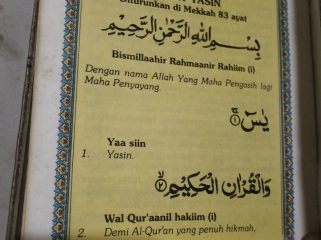 YASIN
Diturunkan di Mekkah 83 ayat
بِسْمِ اللّٰهِ الرَّحْمٰنِ الرَّحِيْمِ
Bismillaahir Rahmaanir Rahiim (i)
Dengan nama Allah Yang Maha Pengasih lagi
Maha Penyayang.
يٰسٓ ۚ ۝١
Yaa siin
1. Yasin.
وَالْقُرْاٰنِ الْحَكِيْمِ ۙ ۝٢
Wal Qur'aanil hakiim (i)
2. Demi Al-Qur'an yang penuh hikmah,